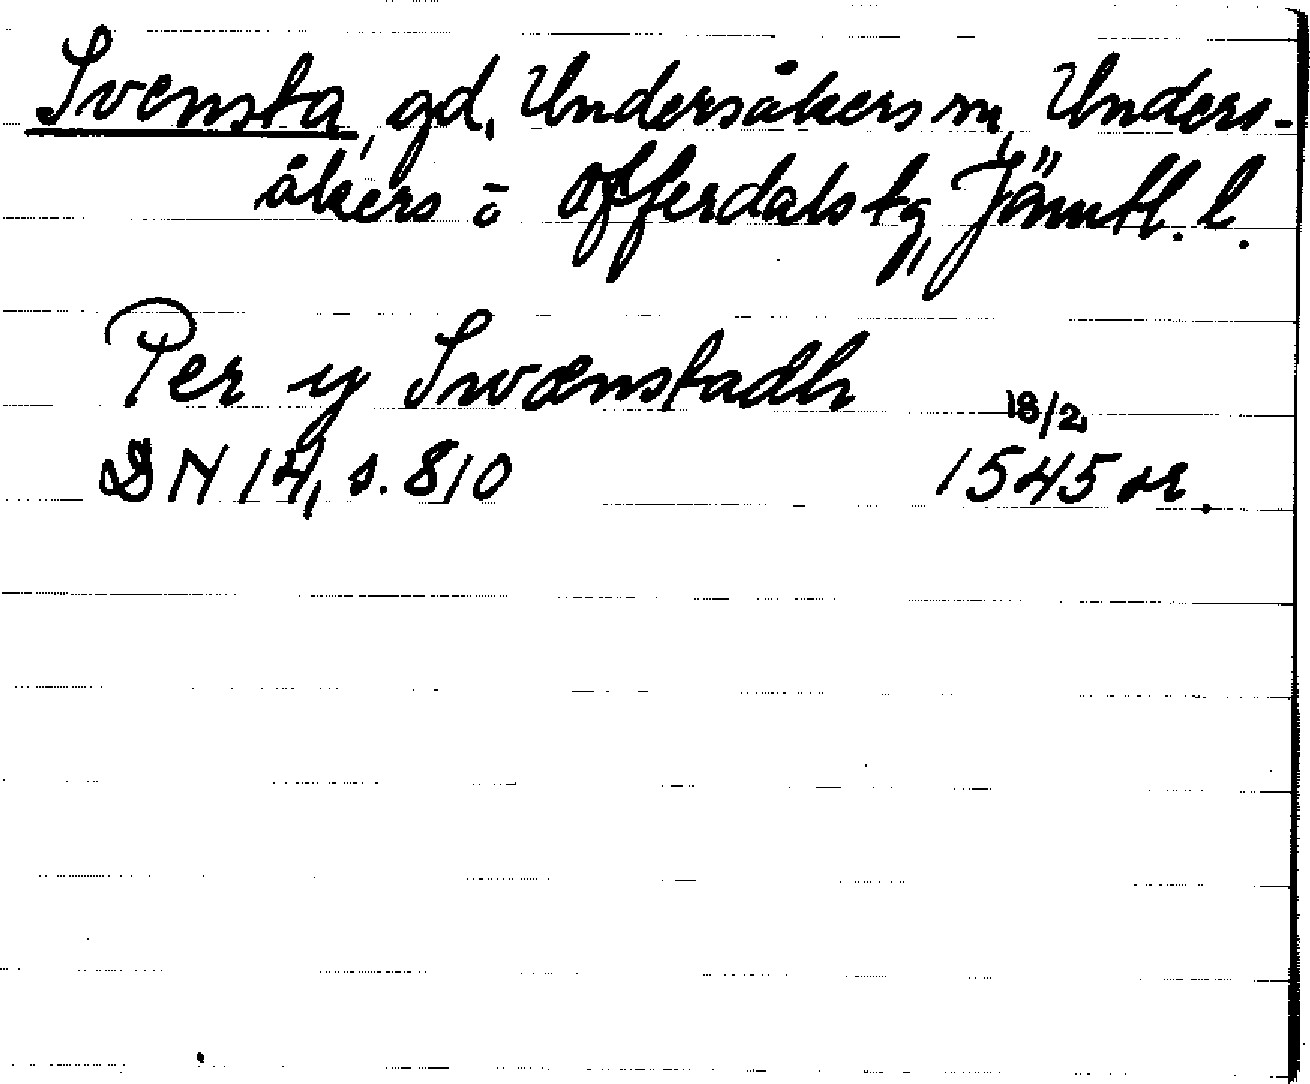 Svensta, gd, Undersåkers sn, Unders-
åkers o Offerdals tg, Jämtl. l.
Per y Swænstadh
18/2
DN 14, s. 810 1545 or.